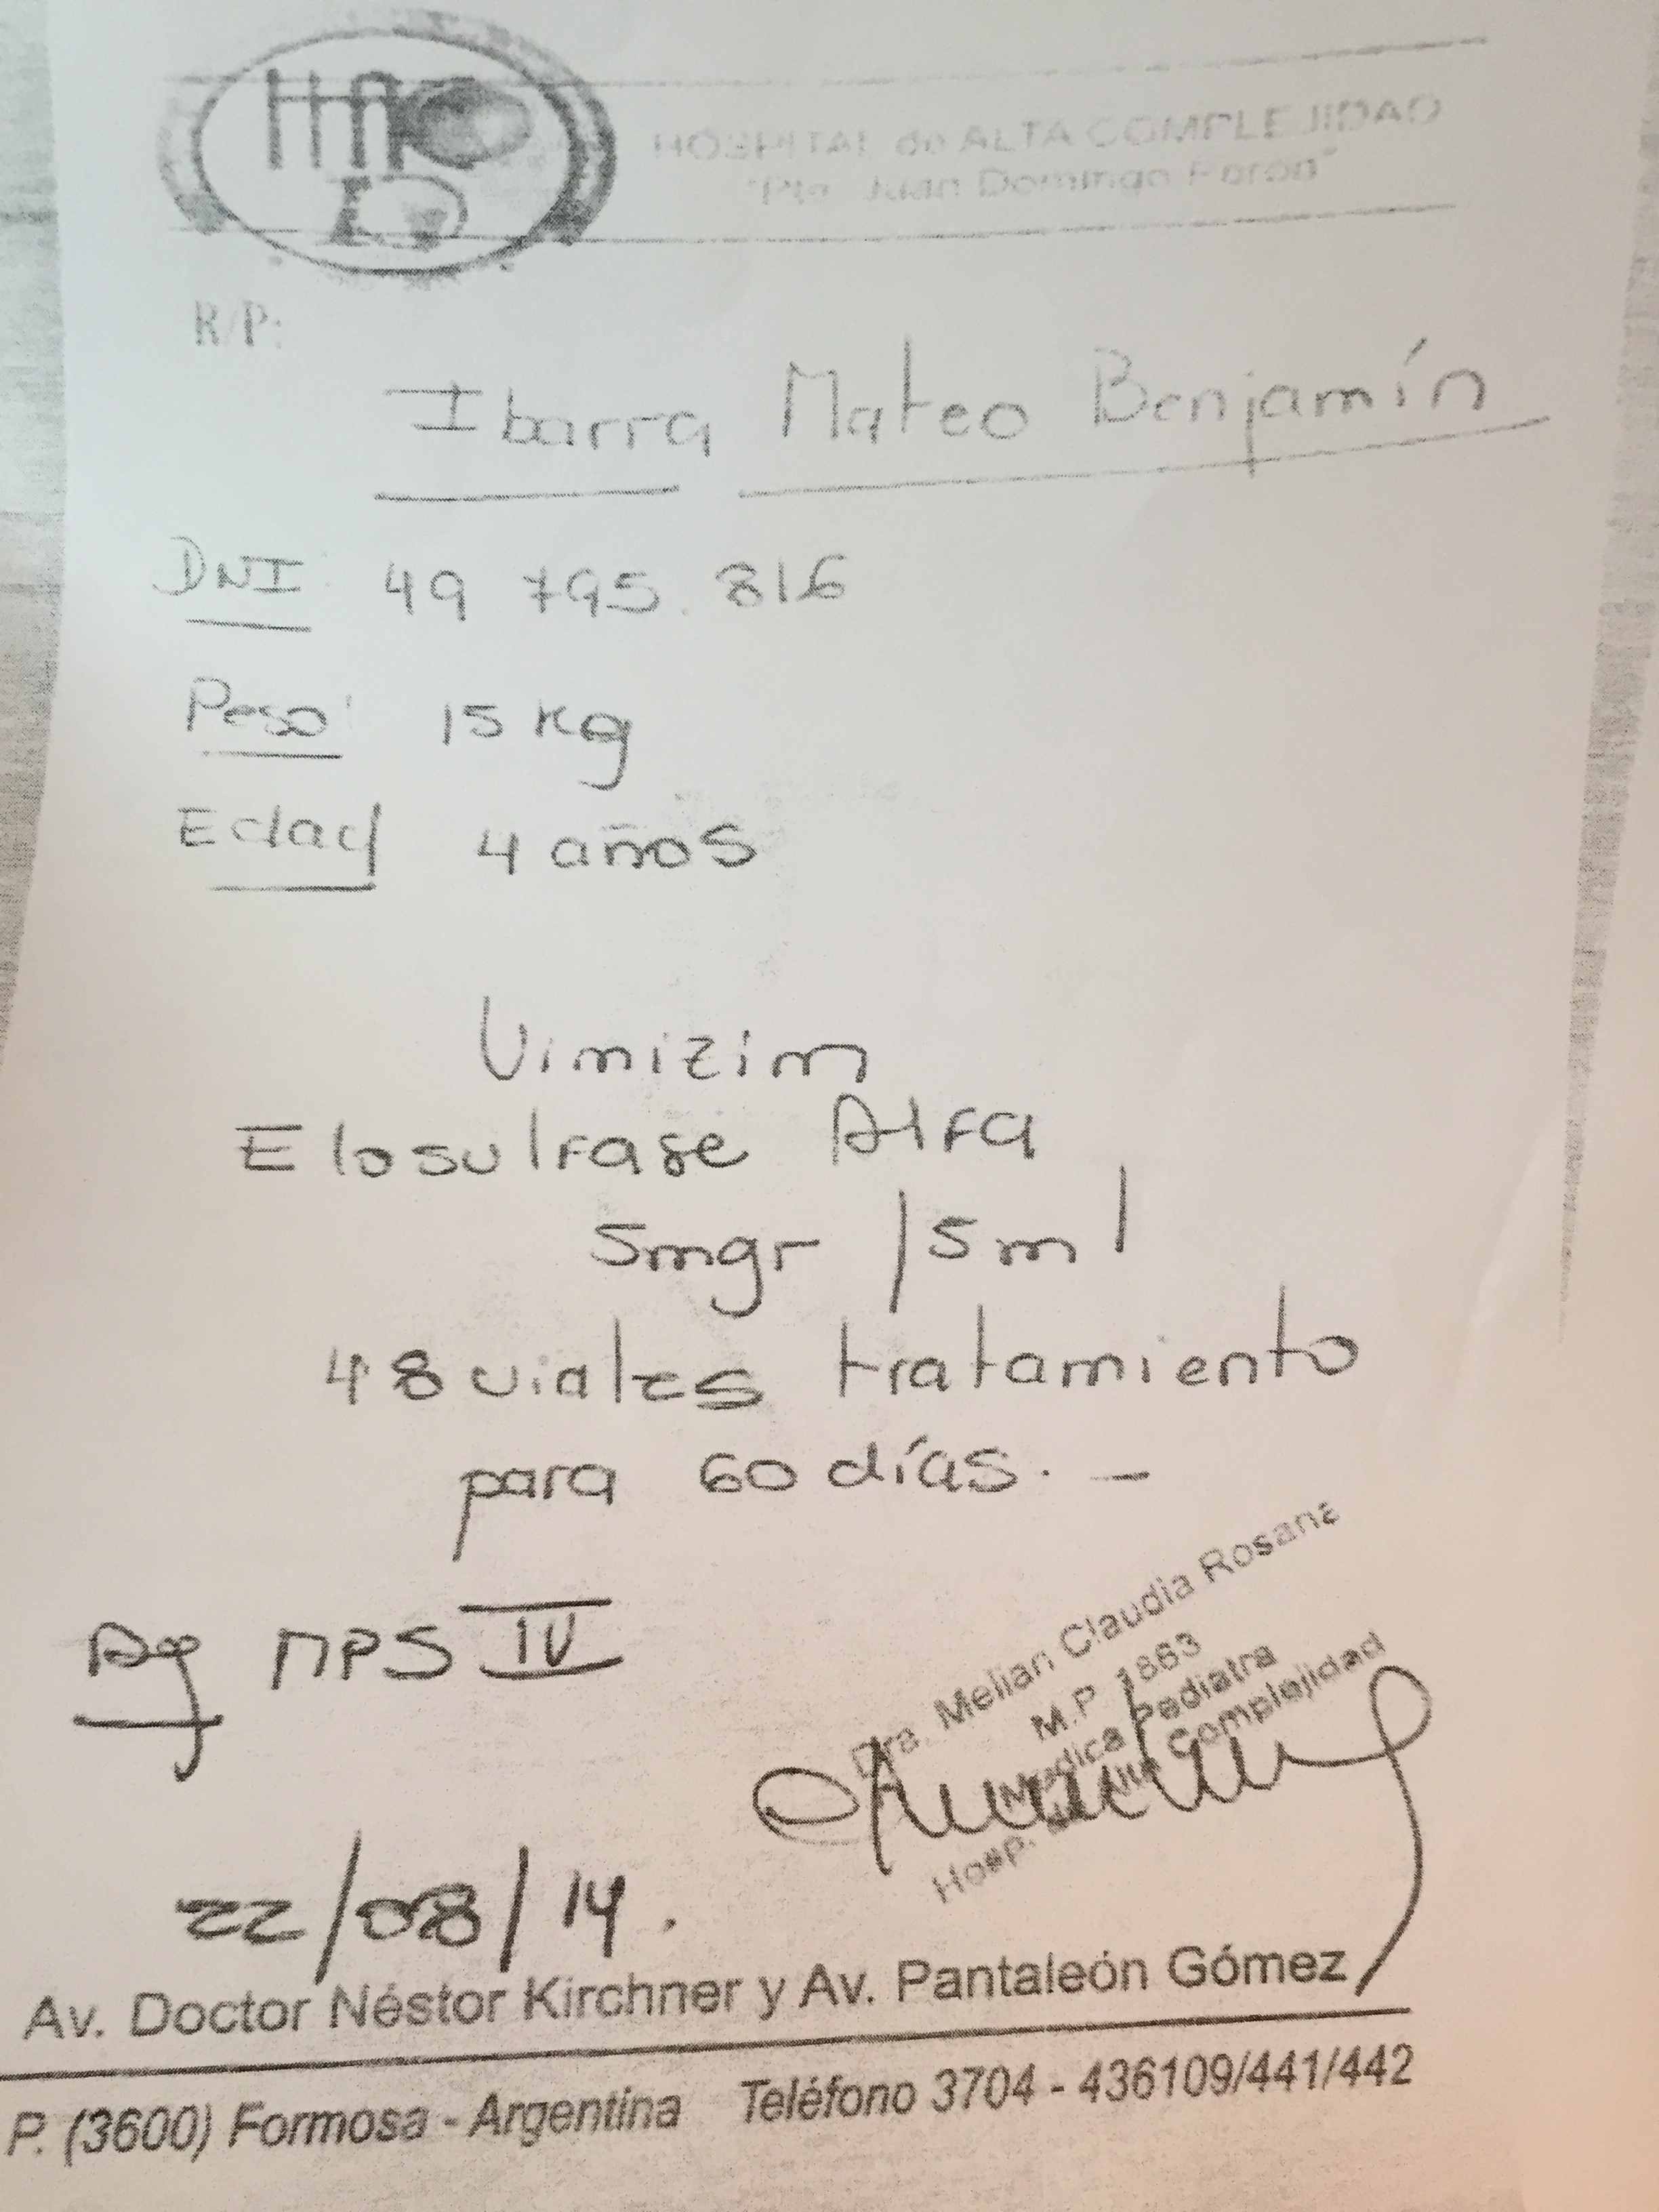 HOSPITAL de ALTA COMPLEJIDAD
"Pte. Juan Domingo Perón"
R/P:
Ibarra Mateo Benjamín
DNI: 49 795.816
Peso: 15 kg
Edad 4 años
Vimizim
Elosulfase Alfa
5mgr /5ml
48 viales tratamiento
para 60 días. —
Dg MPS IV
Dra. Melian Claudia Rosana
M.P. 1863
Medica Pediatra
Hosp. de Alta Complejidad
22/08/14.
Av. Doctor Néstor Kirchner y Av. Pantaleón Gómez
P. (3600) Formosa - Argentina Teléfono 3704 - 436109/441/442